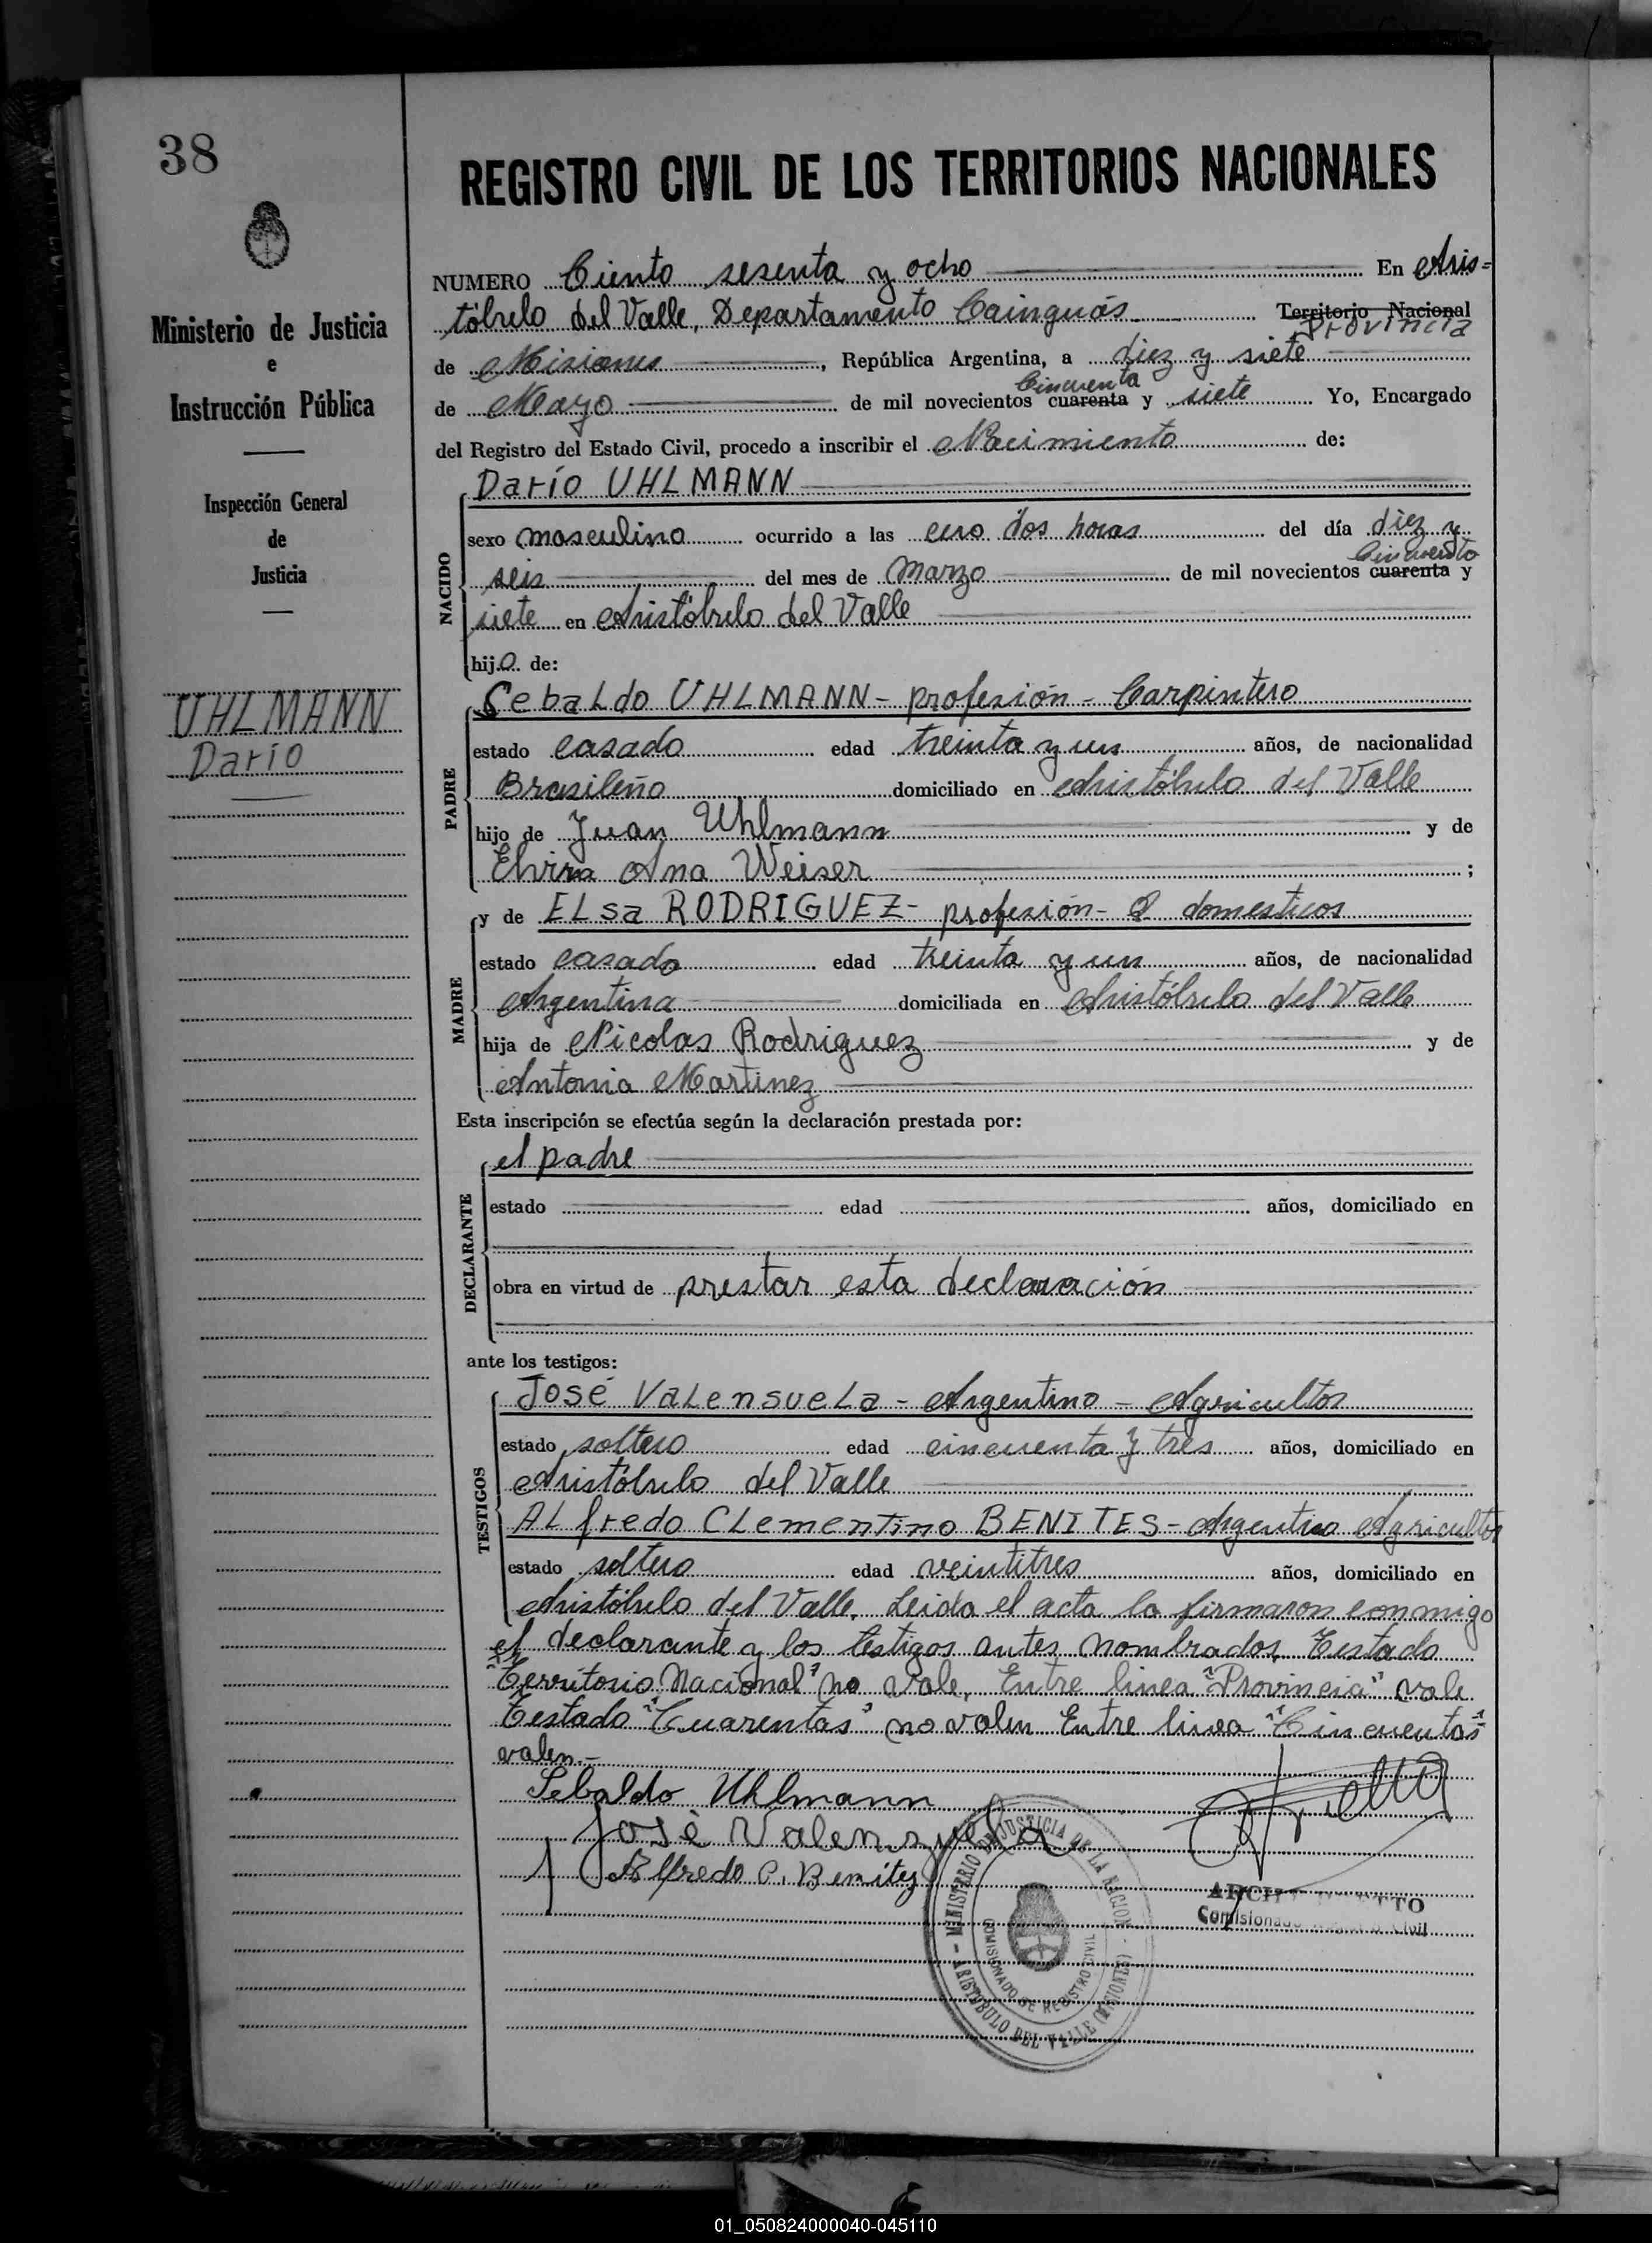 38
REGISTRO CIVIL DE LOS TERRITORIOS NACIONALES
Ministerio de Justicia
e
Instrucción Pública
Inspección General
de
Justicia
UHLMANN
Darío
NUMERO Ciento sesenta y ocho En Aris=
tóbulo del Valle, Departamento Cainguás Territorio Nacional
Provincia
de Misiones, República Argentina, a diez y siete
Cincuenta
de Mayo de mil novecientos cuarenta y siete Yo, Encargado
del Registro del Estado Civil, procedo a inscribir el Nacimiento de:
NACIDO
Darío UHLMANN
sexo masculino ocurrido a las cero dos horas del día diez y
Cincuenta
seis del mes de Marzo de mil novecientos cuarenta y
siete en Aristóbulo del Valle
hijo de:
PADRE
Sebaldo UHLMANN - profesión - Carpintero
estado casado edad treinta y un años, de nacionalidad
Brasileño domiciliado en Aristóbulo del Valle
hijo de Juan Uhlmann y de
Elvira Ana Weiser ;
MADRE
y de ELsa RODRIGUEZ - profesión - Q domesticos
estado casada edad treinta y un años, de nacionalidad
Argentina domiciliada en Aristóbulo del Valle
hija de Nicolas Rodriguez y de
Antonia Martinez
Esta inscripción se efectúa según la declaración prestada por:
DECLARANTE
el padre
estado edad años, domiciliado en
obra en virtud de prestar esta declaración
ante los testigos:
TESTIGOS
José Valensuela - Argentino - Agricultor
estado soltero edad cincuenta y tres años, domiciliado en
Aristóbulo del Valle
Alfredo Clementino BENITES - Argentino Agricultor
estado soltero edad veintitres años, domiciliado en
Aristóbulo del Valle. Leida el acta la firmaron conmigo
el declarante y los testigos antes nombrados. Testado
"Territorio Nacional" no vale. Entre linea "Provincia" vale
Testado "Cuarentas" no valen Entre linea "Cincuentas"
valen.-
Sebaldo Uhlmann
José Valenzuela
Alfredo C. Benitez
MINISTERIO DE JUSTICIA DE LA NACION
COMISIONADO DE REGISTRO CIVIL
ARISTOBULO DEL VALLE (MISIONES)
Comisionado Civil
01_050824000040-045110